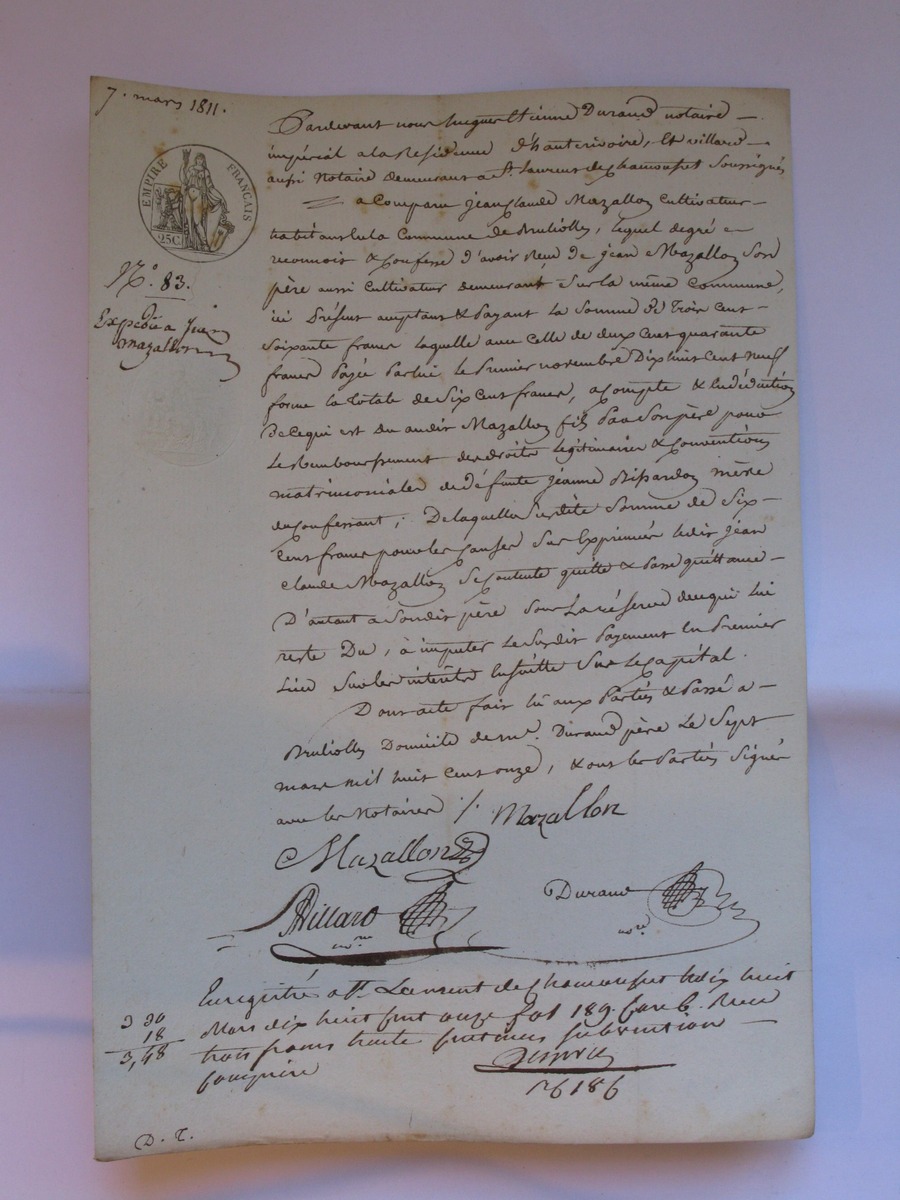 7. mars 1811.
EMPIRE FRANÇAIS
25C
N.° 83.
Expédié a Jean
mazallon
Pardevant nous hugues Etienne Durand notaire
impérial a la Residence d'hauterivoire, Et villard
aussi Notaire demeurant a St. Laurent de chamousset Soussignés
a Comparu jean Claude Mazallon Cultivateur
habitant en la Commune de Brulliolles, lequel de gré
reconnoit & Confesse d'avoir Reçu de jean Mazallon Son
père aussi Cultivateur demeurant Sur la même Commune,
ici Présent acceptant & Payant la Somme de Trois Cent
Soixante francs laquelle avec celle de deux Cent quarante
francs Payée Par lui le Premier novembre Dix huit Cent neuf
forme la Totale de Six Cent francs, a Compte & en déduction
De ce qui est Du audit Mazallon fils Par Son père pour
Le Remboursement des droits légitimaires & Conventions
matrimoniales de défunte jeanne mère
du Confessant ; De laquelle Susdite Somme de Six
Cent francs pour les Causes Sus Exprimées ledit jean
Claude Mazallon Se Contente quitte & Passe quittance
D'autant a Son dit père Sous La réserve de ce qui Lui
reste Du, à imputer Le Susdit Payement En Premier
Lieu Sur les intérêts Ensuitte Sur le Capital.
Dont acte fait lû aux Parties & Passé a
Brulliolles Domicile de me. Durand père Le Sept
mars mil huit cent onze, & ont les Parties Signé
avec les Notaires ./. Mazallon
Mazallon
Villard nore
Durand nore
Enregistré a St. Laurent de chamousset le dix huit
Mars dix huit cent onze fol 189. Case 6. Reçu
trois francs trente centimes subvention
comprise
3 30
18
3,48
D. T.